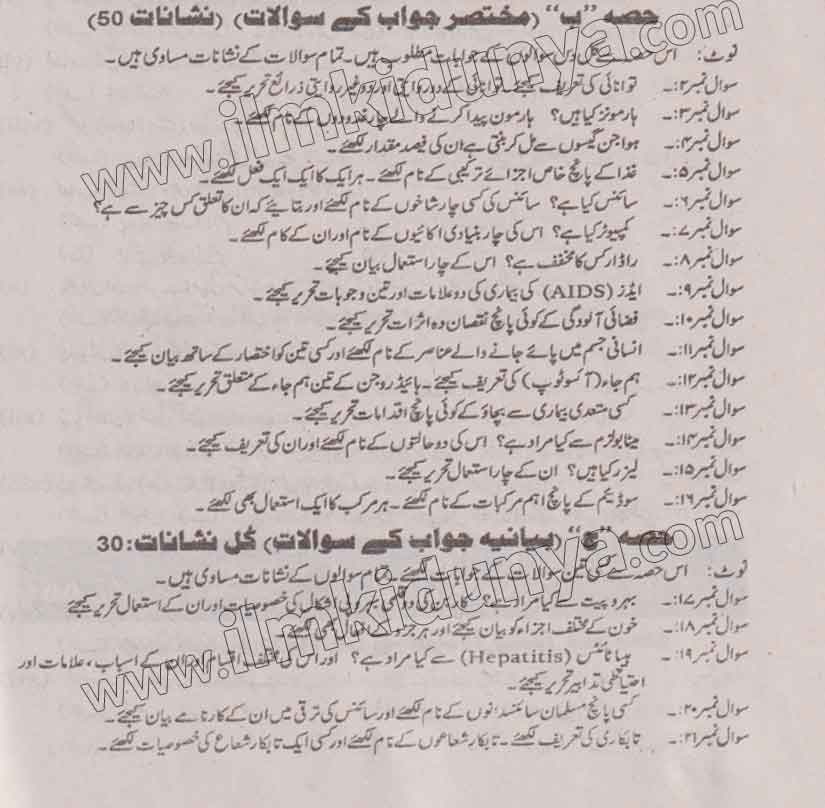 حصہ "ب" (مختصر جواب کے سوالات) (نشانات 50)
نوٹ: اس حصہ سے کل دس سوالوں کے جوابات مطلوب ہیں۔ تمام سوالات کے نشانات مساوی ہیں۔
سوال نمبر۲:۔ توانائی کی تعریف کیجئے۔ توانائی کے دو روایتی اور دو غیر روایتی ذرائع تحریر کیجئے۔
سوال نمبر۳:۔ ہارمونز کیا ہیں؟ ہارمون پیدا کرنے والے چار غدودوں کے نام لکھئے۔
سوال نمبر۴:۔ ہوا جن گیسوں سے مل کر بنتی ہے ان کی فیصد مقدار لکھئے۔
سوال نمبر۵:۔ غذا کے پانچ خاص اجزائے ترکیبی کے نام لکھئے۔ ہر ایک کا ایک ایک فعل لکھئے۔
سوال نمبر۶:۔ سائنس کیا ہے؟ سائنس کی کسی چار شاخوں کے نام لکھئے اور بتایئے کہ ان کا تعلق کس چیز سے ہے؟
سوال نمبر۷:۔ کمپیوٹر کیا ہے؟ اس کی چار بنیادی اکائیوں کے نام اور ان کے کام لکھئے۔
سوال نمبر۸:۔ راڈار کس کا مخفف ہے؟ اس کے چار استعمال بیان کیجئے۔
سوال نمبر۹:۔ ایڈز (AIDS) کی بیماری کی دو علامات اور تین وجوہات تحریر کیجئے۔
سوال نمبر۱۰:۔ فضائی آلودگی کے کوئی پانچ نقصان دہ اثرات تحریر کیجئے۔
سوال نمبر۱۱:۔ انسانی جسم میں پائے جانے والے عناصر کے نام لکھئے اور کسی تین کو اختصار کے ساتھ بیان کیجئے۔
سوال نمبر۱۲:۔ ہم جاء (آئسوٹوپ) کی تعریف کیجئے۔ ہائیڈروجن کے تین ہم جاء کے متعلق تحریر کیجئے۔
سوال نمبر۱۳:۔ کسی متعدی بیماری سے بچاؤ کے کوئی پانچ اقدامات تحریر کیجئے۔
سوال نمبر۱۴:۔ میٹابولزم سے کیا مراد ہے؟ اس کی دو حالتوں کے نام لکھئے اور ان کی تعریف کیجئے۔
سوال نمبر۱۵:۔ لیزر کیا ہیں؟ ان کے چار استعمال تحریر کیجئے۔
سوال نمبر۱۶:۔ سوڈیئم کے پانچ اہم مرکبات کے نام لکھئے۔ ہر مرکب کا ایک استعمال بھی لکھئے۔
حصہ "ج" (بیانیہ جواب کے سوالات) کُل نشانات: 30
نوٹ: اس حصہ سے کسی تین سوالات کے جوابات لکھئے۔ تمام سوالوں کے نشانات مساوی ہیں۔
سوال نمبر۱۷:۔ بہروپیت سے کیا مراد ہے؟ کاربن کی دو قلمی بہروپی اشکال کی خصوصیات اور ان کے استعمال تحریر کیجئے
سوال نمبر۱۸:۔ خون کے مختلف اجزاء کو بیان کیجئے اور ہر جزو کے افعال بھی لکھئے۔
سوال نمبر۱۹:۔ ہپاٹائٹس (Hepatitis) سے کیا مراد ہے؟ اور اس کی مختلف اقسام اور ان کے اسباب، علامات اور
احتیاطی تدابیر تحریر کیجئے۔
سوال نمبر۲۰:۔ کسی پانچ مسلمان سائنسدانوں کے نام لکھئے اور سائنس کی ترقی میں ان کے کارنامے بیان کیجئے۔
سوال نمبر۲۱:۔ تابکاری کی تعریف لکھئے۔ تابکار شعاعوں کے نام لکھئے اور کسی ایک تابکار شعاع کی خصوصیات لکھئے۔
www.ilmkidunya.com
www.ilmkidunya.com